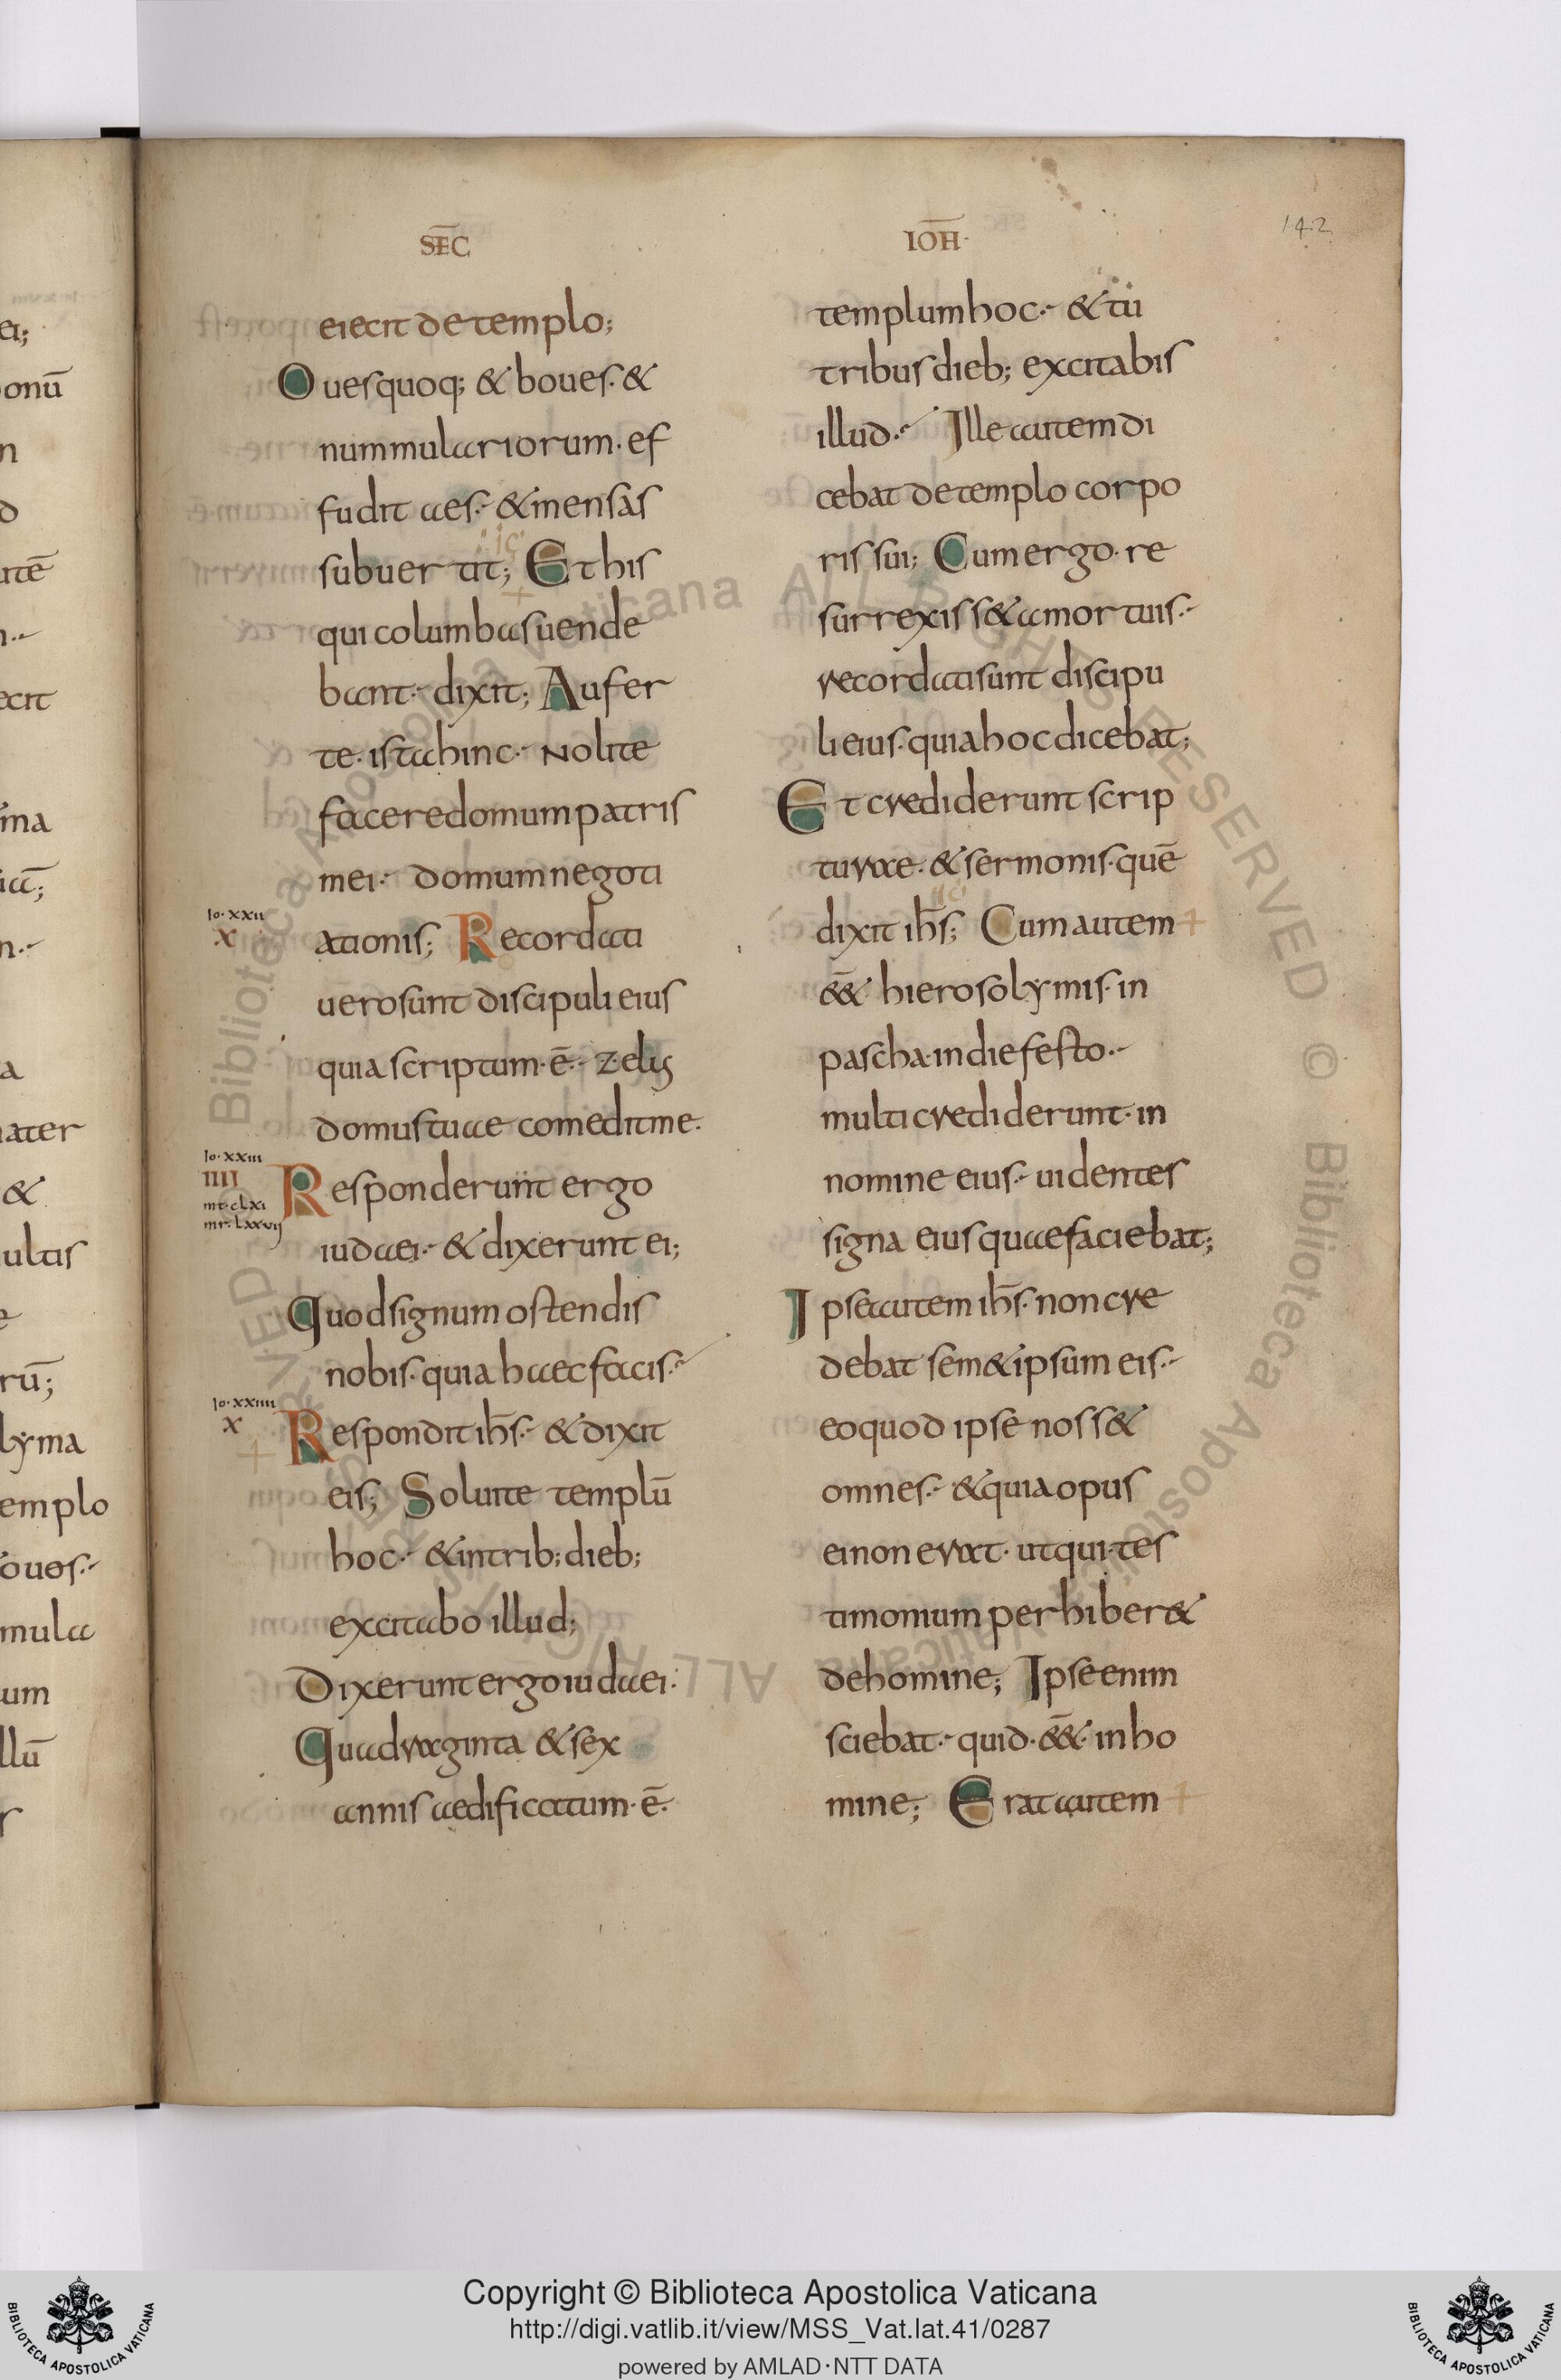 SEC̅
IOH̅·
142
eiecit de templo;
Ouesquoq; & boues· &
nummulariorum· ef
fudit aes· & mensas
subuertit; Et his
qui columbas uende
bant· dixit; Aufer
te· ista hinc· Nolite
facere domum patris
mei· domum negoti
Io·xxii
x
ationis; Recordati
uero sunt discipuli eius
quia scriptum· ē· zelus
domus tuae comedit me·
Io·xxiii
IIII
mt·clxi
mr·lxxvij
Responderunt ergo
iudaei· & dixerunt ei;
Quod signum ostendis
nobis· quia haec facis·
Io·xxiiii
x
Respondit ih̅s· & dixit
eis; Soluite templū
hoc· & in trib; dieb;
excitabo illud;
Dixerunt ergo iudaei·
Quadraginta & sex
annis aedificatum· ē·
templum hoc· & tu
tribus dieb; excitabis
illud· Ille autem di
cebat de templo corpo
ris sui; Cum ergo· re
surrexiss& a mortuis·
recordati sunt discipu
li eius· quia hoc dicebat;
Et crediderunt scrip
turae· & sermonis· quē
dixit ih̅s; Cum autem
&̅& hierosolymis· in
pascha· in die festo·
multi crediderunt· in
nomine eius· uidentes
signa eius quae faciebat;
Ipse autem ih̅s· non cre
debat sem&ipsum eis·
eo quod ipse noss&
omnes· & quia opus
ei non erat· ut qui· tes
timonium perhiber&
de homine; Ipse enim
sciebat· quid· &̅&· in ho
mine; Erat autem
ei;
onū
n
d
utē
n·
ecit
ma
n·
a
mater
&
multis
rū;
lyma
templo
oues·
mula
um
llū
Copyright © Biblioteca Apostolica Vaticana
http://digi.vatlib.it/view/MSS_Vat.lat.41/0287
powered by AMLAD·NTT DATA
BIBLIOTECA APOSTOLICA VATICANA
BIBLIOTECA APOSTOLICA VATICANA
Biblioteca Apostolica Vaticana ALL RIGHTS RESERVED © Biblioteca Apostolica Vaticana ALL RIGHTS RESERVED ©